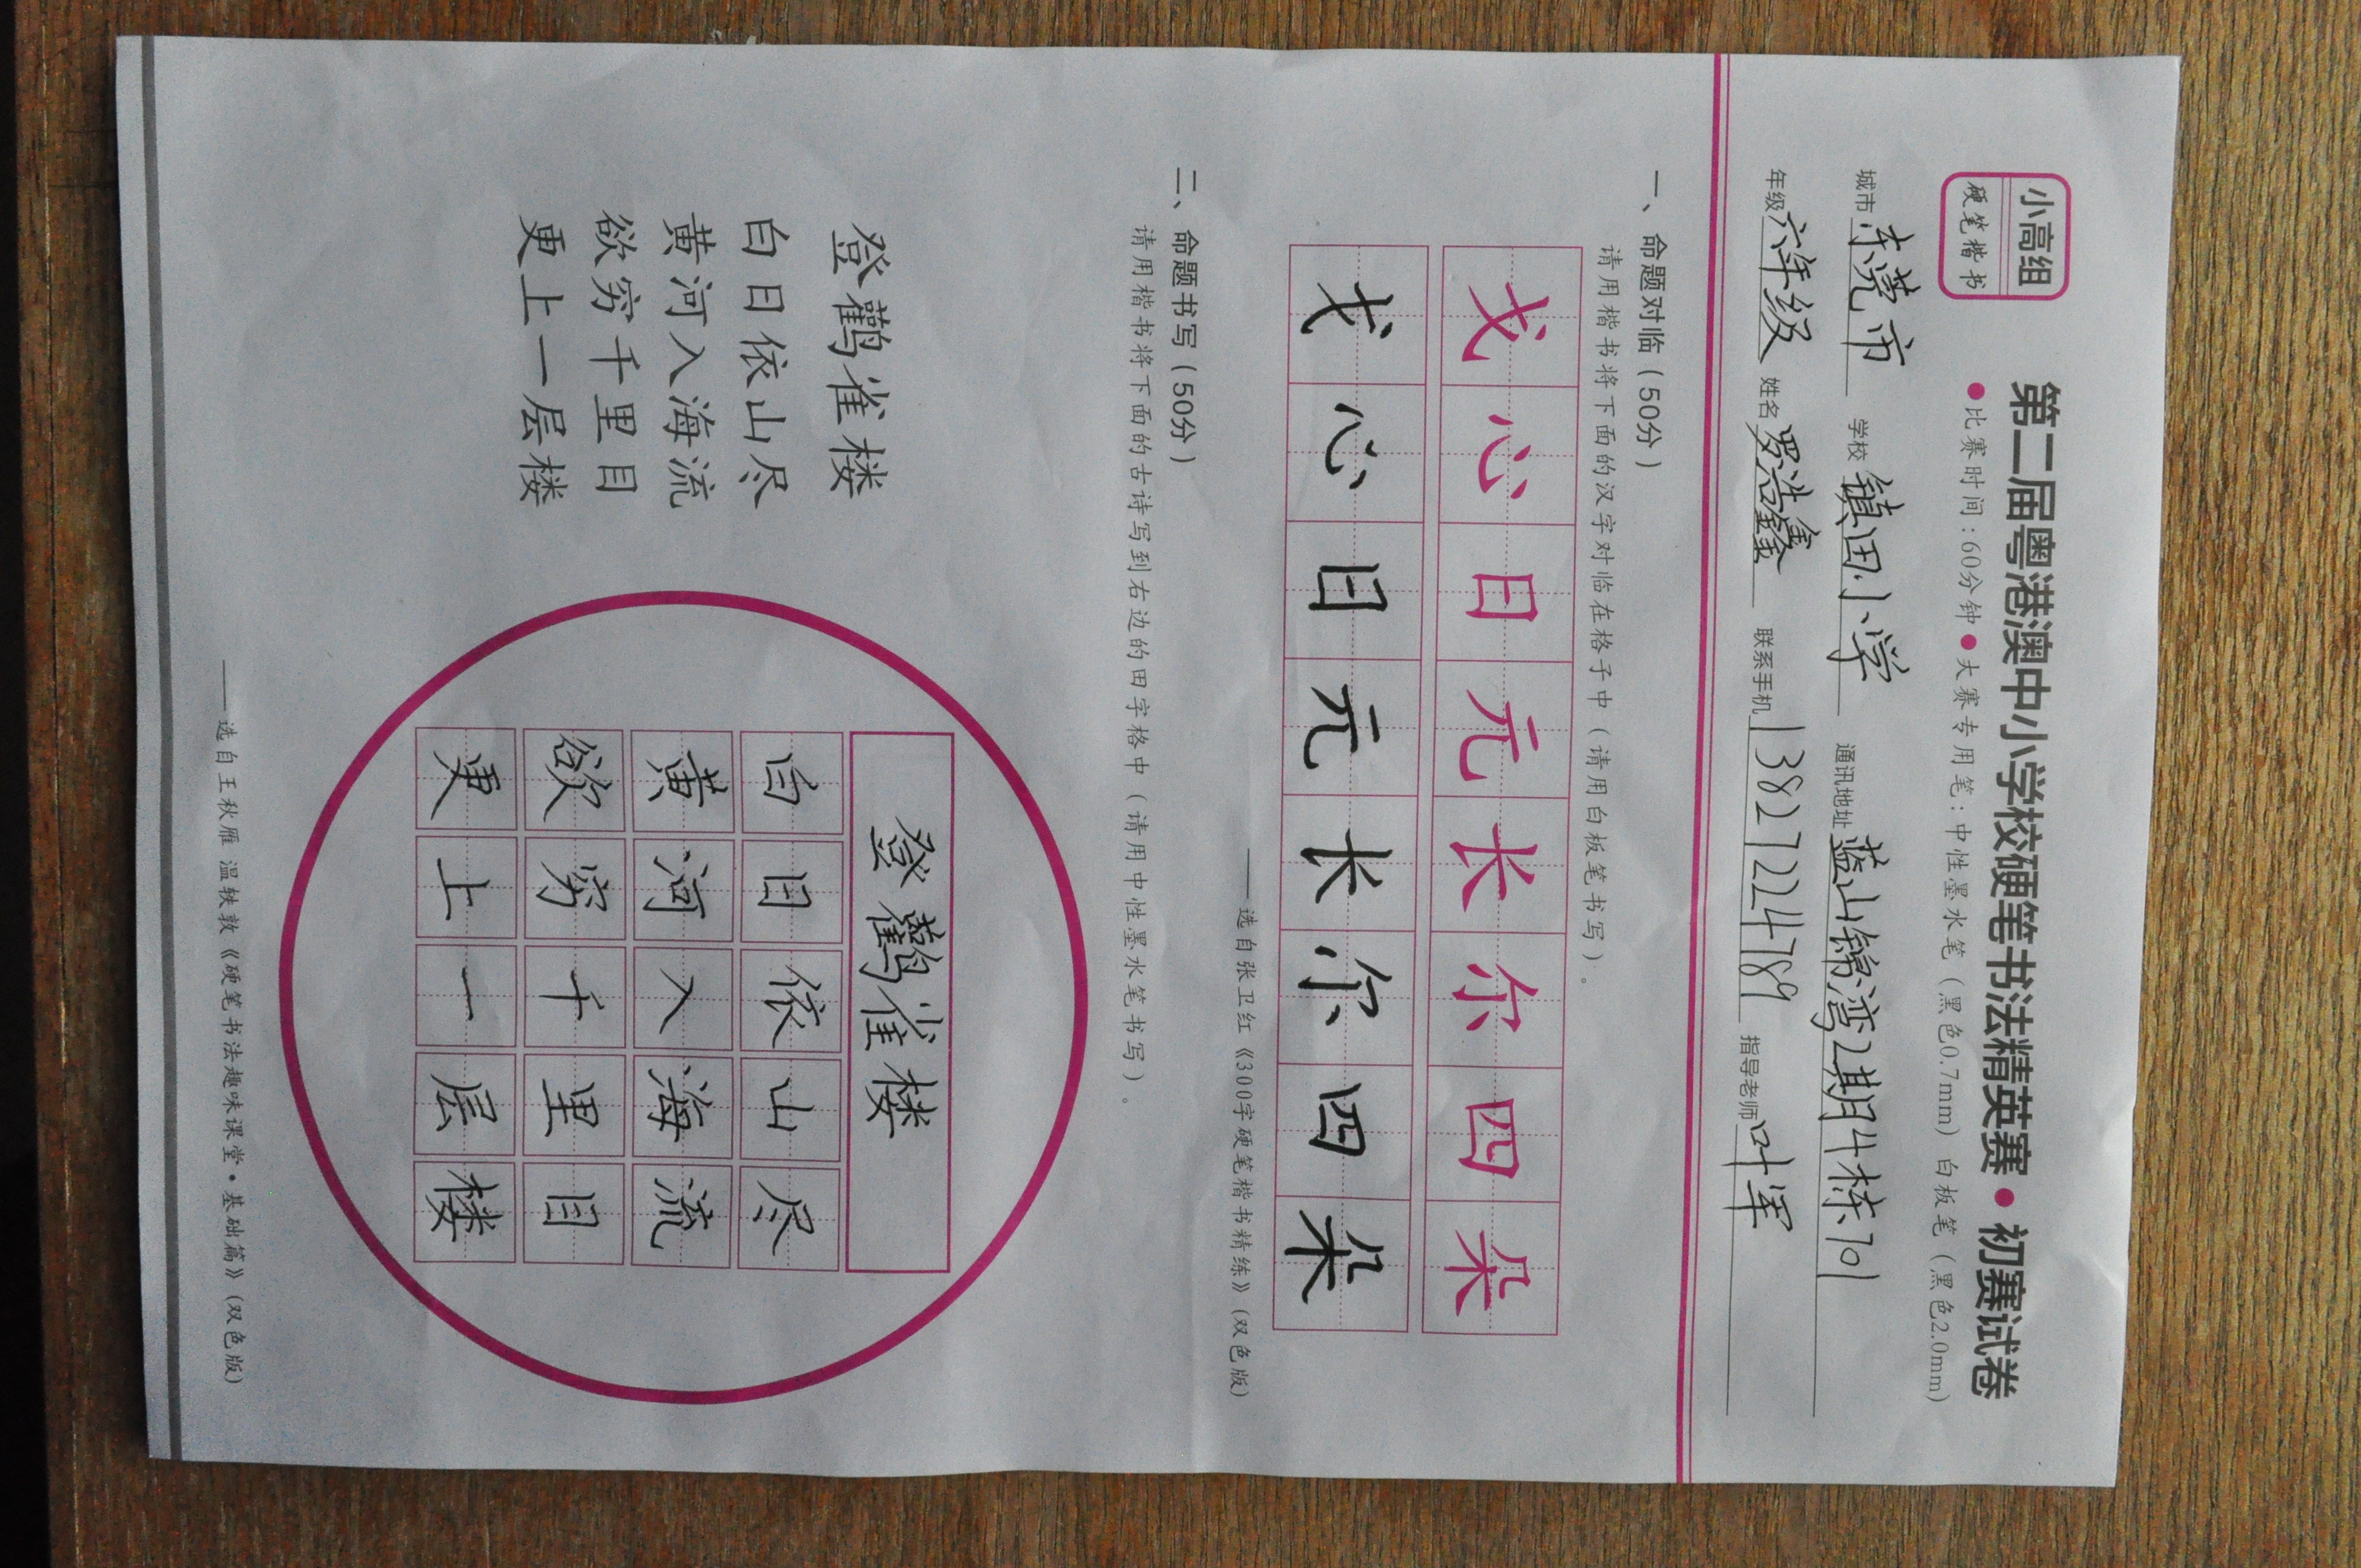 小高组
硬笔楷书
第二届粤港澳中小学校硬笔书法精英赛·初赛试卷
●比赛时间：60分钟●大赛专用笔：中性墨水笔（黑色0.7mm）白板笔（黑色2.0mm）
城市 东莞市 学校 镇田小学 通讯地址 蓝山锦湾2期4栋701
年级 六年级 姓名 罗浩鑫 联系手机 13827224789 指导老师 叶军
一、命题对临（50分）
请用楷书将下面的汉字对临在格子中（请用白板笔书写）。
戈心日元长尔四朵
戈心日元长尔四朵
——选自张卫红《300字硬笔楷书精练》（双色版）
二、命题书写（50分）
请用楷书将下面的古诗写到右边的田字格中（请用中性墨水笔书写）。
登鹳雀楼
白日依山尽
黄河入海流
欲穷千里目
更上一层楼
登鹳雀楼
白日依山尽
黄河入海流
欲穷千里目
更上一层楼
——选自王秋雁 温轶敦《硬笔书法趣味课堂·基础篇》（双色版）